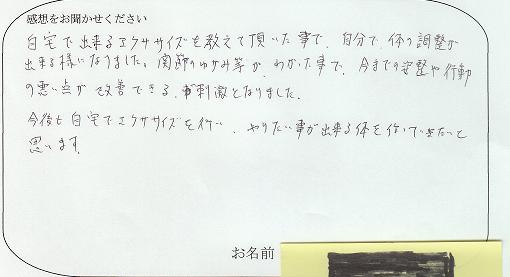 感想をお聞かせください
自宅で出来るエクササイズを教えて頂いた事で、自分で、体の調整が
出来る様になりました。関節のゆがみ等が、わかった事で、今までの姿整や行動
の悪い点が改善できる、が刺激となりました。
今後も自宅でエクササイズを行い、やりたい事が出来る体を作っていきたいと
思います。
お名前